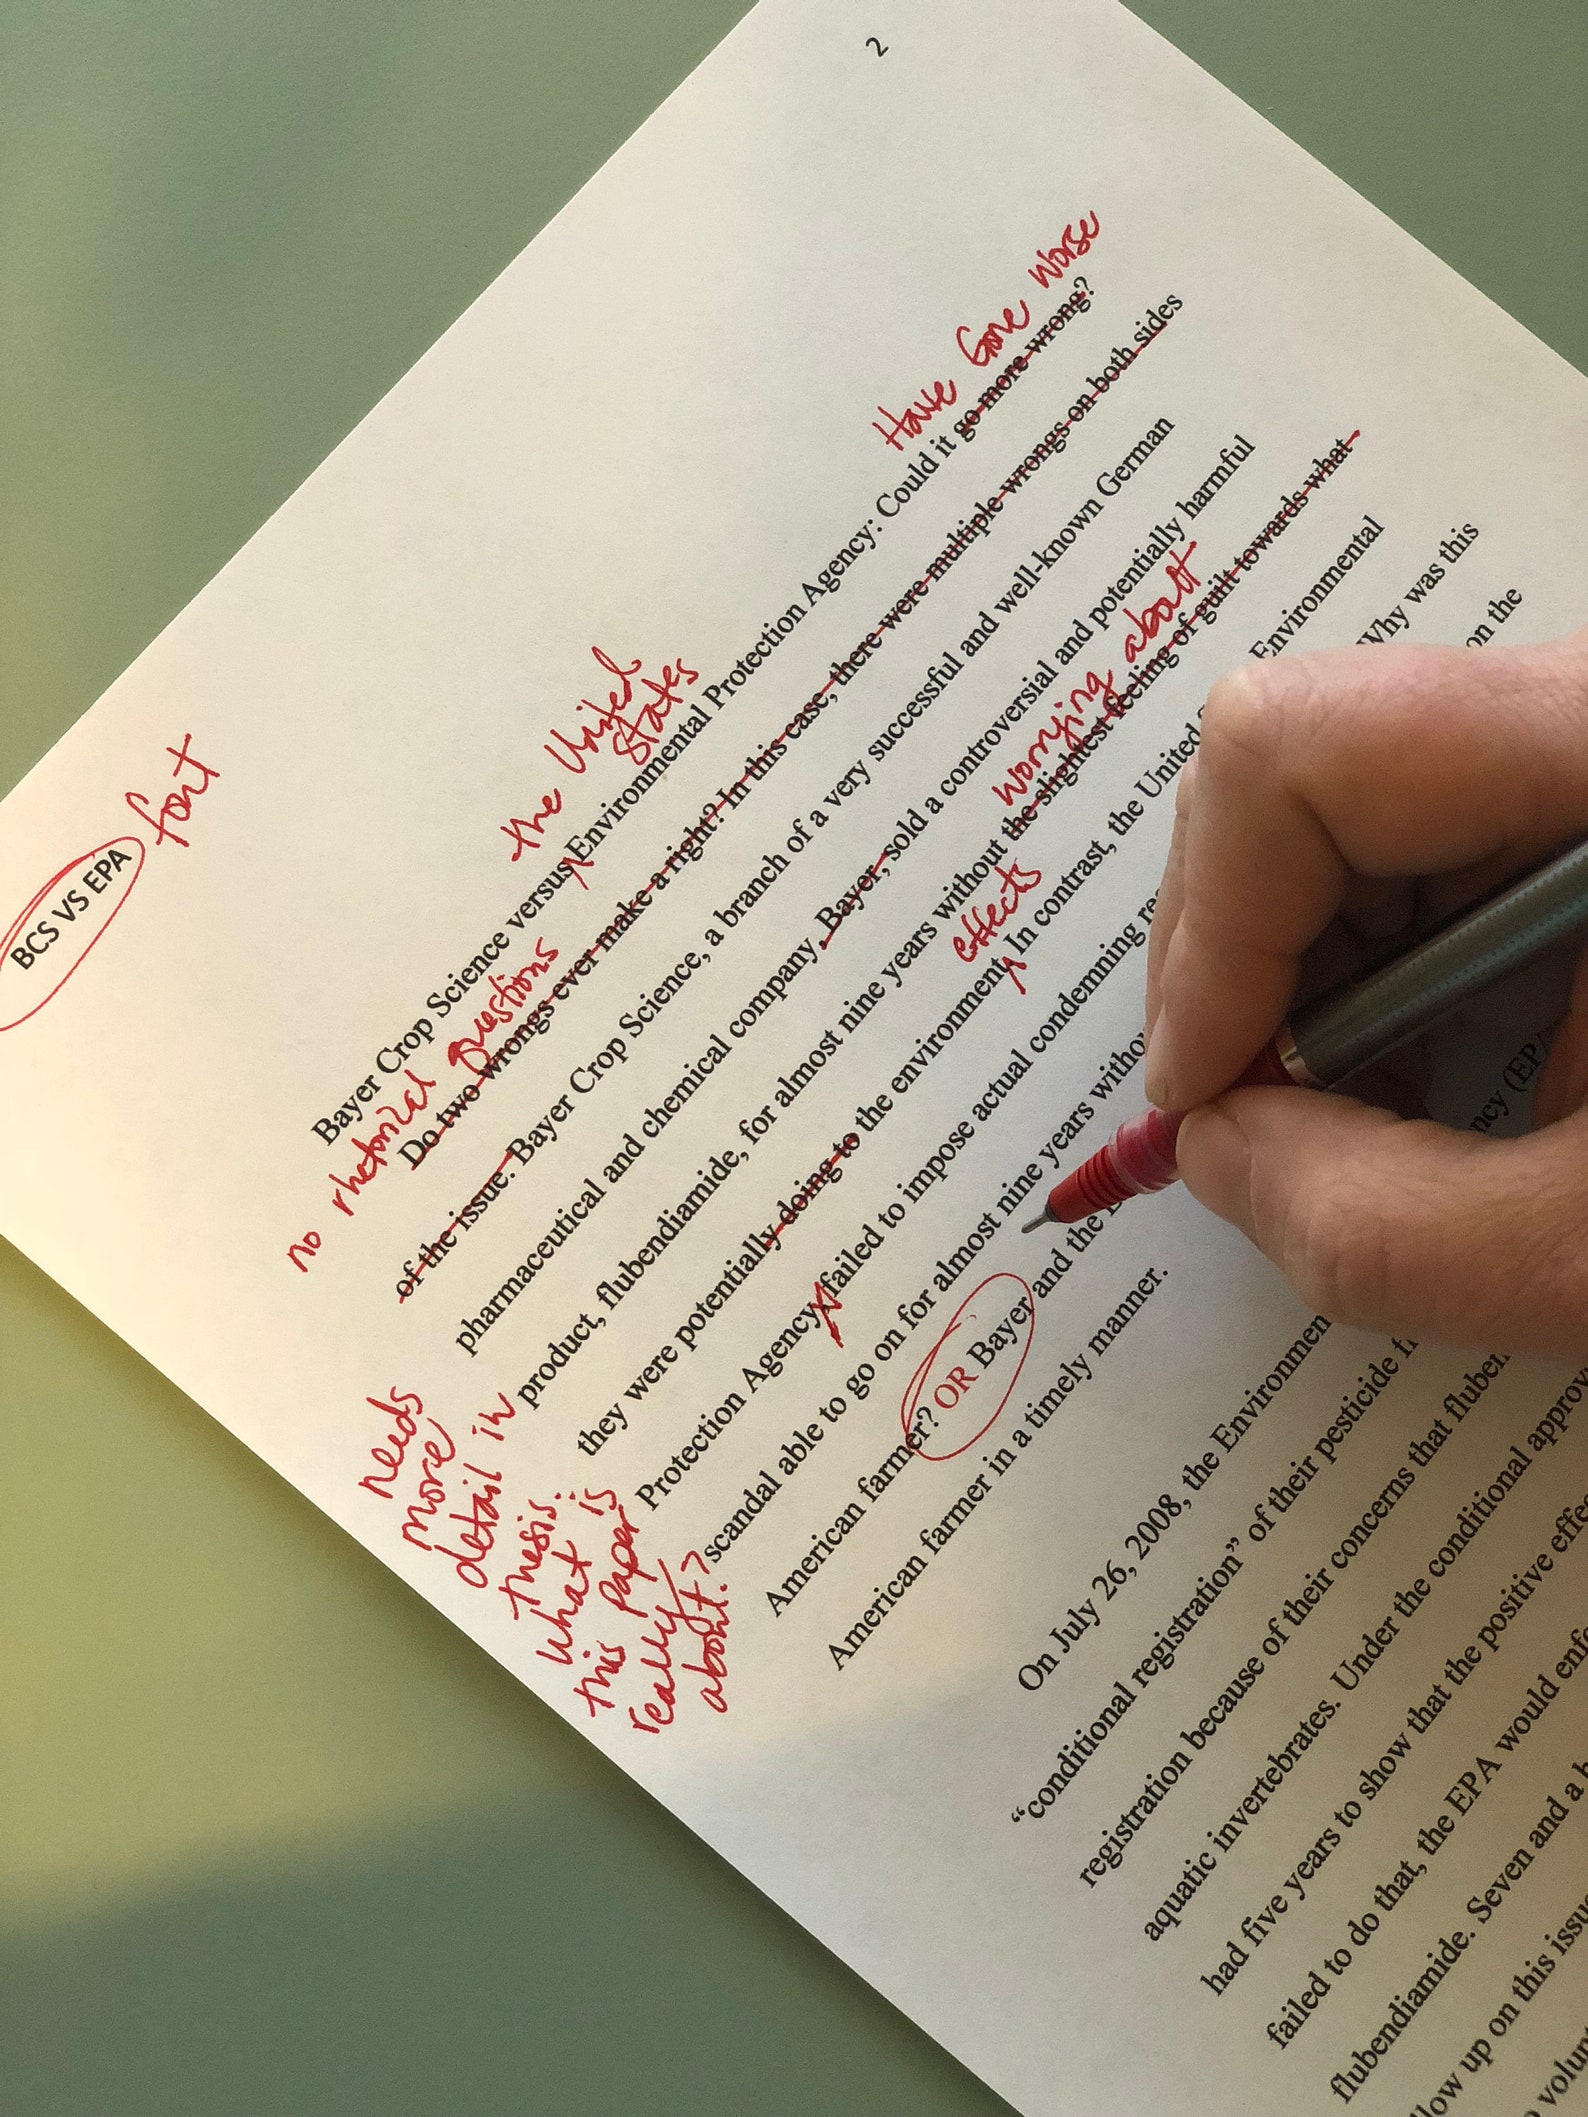 2
BCS VS EPA
font
Have Gone Worse
the United
States
Bayer Crop Science versus Environmental Protection Agency: Could it go more wrong?
no rhetorical questions
Do two wrongs ever make a right? In this case, there were multiple wrongs on both sides
of the issue. Bayer Crop Science, a branch of a very successful and well-known German
pharmaceutical and chemical company, Bayer, sold a controversial and potentially harmful
worrying about
product, flubendiamide, for almost nine years without the slightest feeling of guilt towards what
effects
they were potentially doing to the environment. In contrast, the United Environmental
Protection Agency, failed to impose actual condemning Why was this
scandal able to go on for almost nine years on the
American farmer? OR Bayer and the
American farmer in a timely manner.
needs
more
detail in
thesis.
What is
this paper
really
about?
On July 26, 2008, the (EPA
"conditional registration" of their pesticide
registration because of their concerns that
aquatic invertebrates. Under the conditional
had five years to show that the positive
failed to do that, the EPA would
flubendiamide. Seven and a
up on this